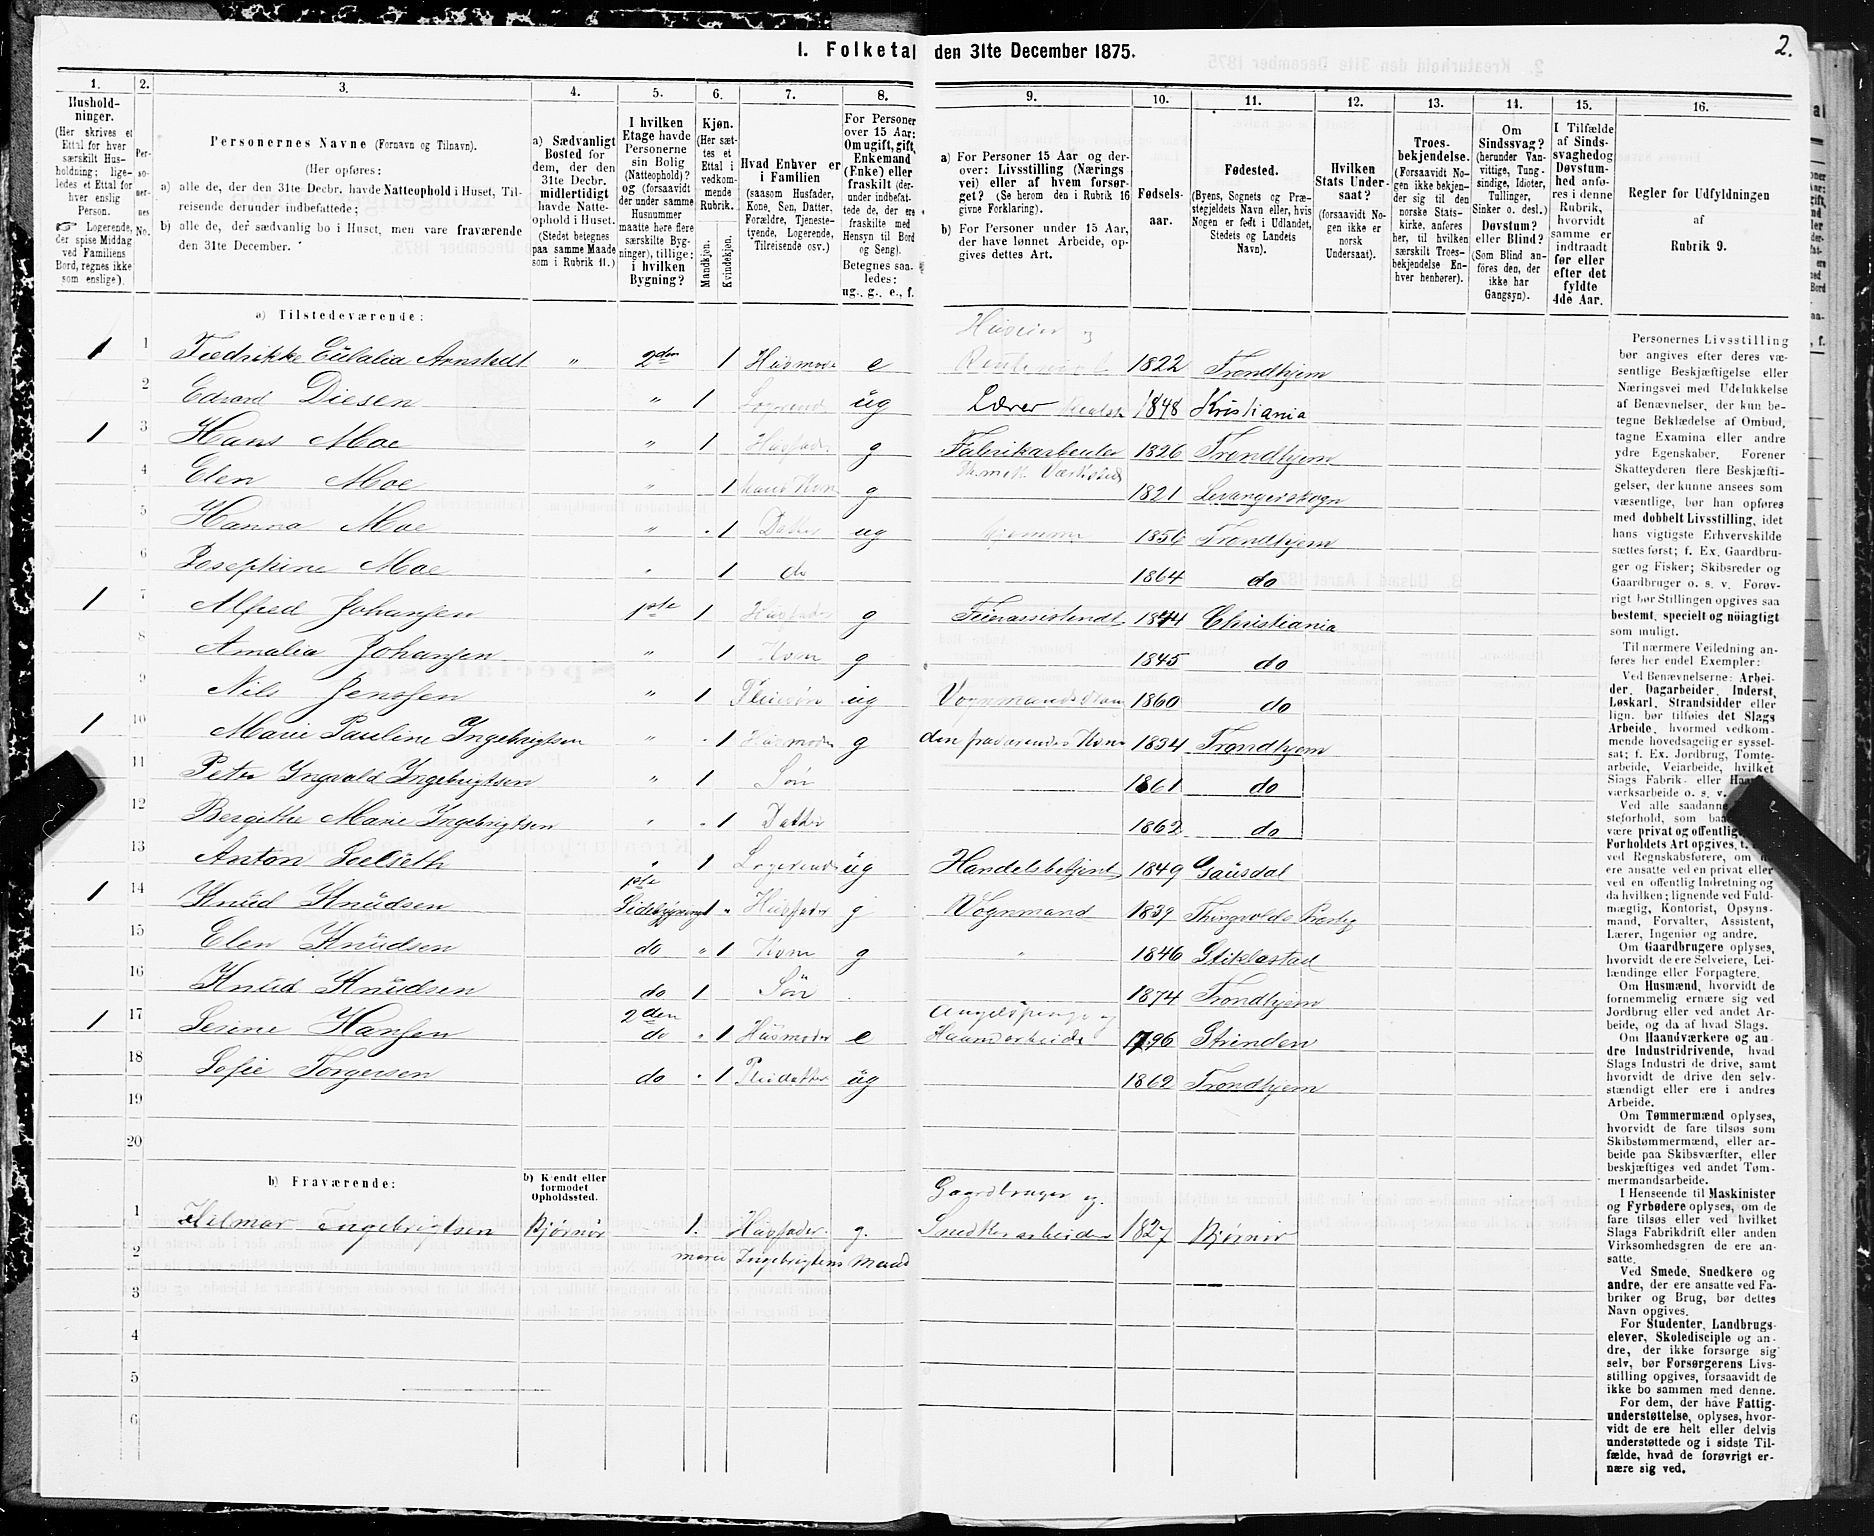 2.
I. Folketal den 31te December 1875.
1. 2. 3. 4. 5. 6. 7. 8. 9. 10. 11. 12. 13. 14. 15. 16.
Husholdninger.
(Her skrives et Ettal for hver særskilt Husholdning; ligeledes et Ettal for hver enslig Person.
☞ Logerende, der spise Middag ved Familiens Bord, regnes ikke som enslige).
Personernes No.
Personernes Navne (Fornavn og Tilnavn).
(Her opføres:
a) alle de, der den 31te Decbr. havde Natteophold i Huset, Tilreisende derunder indbefattede;
b) alle de, der sædvanlig bo i Huset, men vare fraværende den 31te December.
a) Sædvanligt Bosted for dem, der den 31te Decbr. midlertidigt havde Natteophold i Huset. (Stedet betegnes paa samme Maade som i Rubrik 11.)
I hvilken Etage havde Personerne sin Bolig (Natteophold)? og (forsaavidt der under samme Husnummer maatte høre flere særskilte Bygninger), tillige: i hvilken Bygning?
Kjøn. (Her sættes et Ettal i vedkommende Rubrik.
Mandkjøn. Kvindekjøn.
Hvad Enhver er i Familien (saasom Husfader, Kone, Søn, Datter, Forældre, Tjenestetyende, Logerende, Tilreisende osv.)
For Personer over 15 Aar: Om ugift, gift, Enkemand (Enke) eller fraskilt (derunder indbefattede de, der ere fraskilte med Hensyn til Bord og Seng). Betegnes saaledes: ug., g., e., f.
a) For Personer 15 Aar og derover: Livsstilling (Næringsvei) eller af hvem forsørget? (Se herom den i Rubrik 16 givne Forklaring).
b) For Personer under 15 Aar, der have lønnet Arbeide, opgives dettes Art.
Fødselsaar.
Fødested. (Byens, Sognets og Præstegjeldets Navn eller, hvis Nogen er født i Udlandet, Stedets og Landets Navn).
Hvilken Stats Undersaat? (forsaavidt Nogen ikke er norsk Undersaat).
Troesbekjendelse. (Forsaavidt Nogen ikke bekjender sig til den norske Statskirke, anføres her, til hvilken særskilt Troesbekjendelse Enhver henhører).
Om Sindssvag? (herunder Vanvittige, Tungsindige, Idioter, Tullinger, Sinker o. desl.) Døvstum? eller Blind? (Som Blind anføres den, der ikke har Gangsyn).
I Tilfælde af Sindssvaghed og Døvstumhed anføres i denne Rubrik, hvorvidt samme er indtraadt før eller efter det fyldte 4de Aar.
Regler for Udfyldningen af Rubrik 9.
a) Tilstedeværende:
1 1 Fredrikke Eulalia Arnstedt " 2den 1 Husmoder e Huseier 1822 Trondhjem
2 Edvard Diesen " 1 Logerende ug Lærer 1848 Kristiania
1 3 Hans Moe " 1 Husfader g Fabrikarbeider 1826 Trondhjem
4 Elen Moe " 1 hans Kone g 1821 Levangerskogn
5 Hanna Moe " 1 Datter ug 1856 Trondhjem
6 Josephine Moe " 1 do 1864 do
1 7 Alfred Johansen 1ste 1 Husfader g 1844 Christiania
8 Amalia Johansen " 1 Kone g 1845 do
9 Nils Jenssen " 1 Pleiesøn ug 1860 do
1 10 Marie Pauline Ingebrigtsen " 1 Husmoder g den fraværendes Kone 1834 Trondhjem
11 Peter Ingvald Ingebrigtsen " 1 Søn 1861 do
12 Bergithe Marie Ingebrigtsen " 1 Datter 1862 do
13 Anton Seelseth " 1 Logerende ug Handelsbetjent 1849 Gausdal
1 14 Knud Knudsen 1ste Sidebygning 1 " Husfader g Vognmand 1839
15 Elen Knudsen do " 1 Kone g " 1846 Stiklastad
16 Knud Knudsen do 1 Søn 1874 Trondhjem
1 17 Serine Hansen 2den do 1 Husmoder e Haandarbeide 1796 Strinden
18 Sofie Torgersen do 1 Pleidatter ug 1862 Trondhjem
19
20
b) Fraværende:
b) Kjendt eller formodet Opholdssted.
1 Hilmar Ingebrigtsen Bjørnør 1. Husfader g. Gaardbruger og Snedkerarbeider 1827 Bjørnør
2 Marie Ingebrigtens Mand
3
4
5
6
Personernes Livsstilling bør angives efter deres væsentlige Beskjæftigelse eller Næringsvei med Udelukkelse af Benævnelser, der kun betegne Beklædelse af Ombud, tagne Examina eller andre ydre Egenskaber. Forener Skatteyderen flere Beskjæftigelser, der kunne ansees som væsentlige, bør han opføres med dobbelt Livsstilling, idet hans vigtigste Erhvervskilde sættes først; f. Ex. Gaardbruger og Fisker; Skibsreder og Gaardbruger o. s. v. Forøvrigt bør Stillingen opgives saa bestemt, specielt og nøiagtigt som muligt.
Til nærmere Veiledning anføres her endel Exempler:
Ved Benævnelserne: Arbeider, Dagarbeider, Inderst, Løskarl, Strandsidder eller lign. bør tilføies det Slags Arbeide, hvormed vedkommende hovedsagelig er sysselsat; f. Ex. Jordbrug, Tomtearbeide, Veiarbeide, hvilket Slags Fabrik- eller
værksarbeide o. s. v.
Ved alle saadanne
være privat og offentlig
Forholdets Art opgives,
ved Regnskabsførere, om
ere ansatte ved en privat eller ved en offentlig Indretning og da hvilken; lignende ved Fuldmægtig, Kontorist, Opsynsmand, Forvalter, Assistent, Lærer, Ingeniør og andre.
Om Gaardbrugere oplyses, hvorvidt de ere Selveiere, Leilændinge eller Forpagtere.
Om Husmænd, hvorvidt de fornemmelig ernære sig ved Jordbrug eller ved andet Arbeide, og da af hvad Slags.
Om Haandværkere og andre Industridrivende, hvad Slags Industri de drive, samt hvorvidt de drive den selvstændigt eller ere i andres Arbeide.
Om Tømmermænd oplyses, hvorvidt de fare tilsøs som Skibstømmermænd, eller arbeide paa Skibsværfter, eller beskjæftiges ved andet Tømmermandsarbeide.
I Henseende til Maskinister og Fyrbødere oplyses, om de fare tilsøs eller ved hvilket Slags Fabrikdrift eller anden Virksomhedsgren de ere ansatte.
Ved Smede, Snedkere og andre, der ere ansatte ved Fabriker og Brug, bør dettes Navn opgives.
For Studenter, Landbrugselever, Skoledisciple og andre, der ikke forsørge sig selv, bør Forsørgerens Livsstilling opgives, forsaavidt de ikke bo sammen med denne.
For dem, der have Fattigunderstøttelse, oplyses, hvorvidt de ere helt eller delvis understøttede og i sidste Tilfælde, hvad de forøvrigt ernære sig ved.